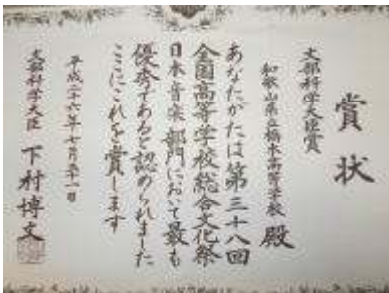 賞状
文部科学大臣賞
和歌山県立橋本高等学校 殿
あなたがたは第三十八回
全国高等学校総合文化祭
日本音楽部門において最も
優秀であると認められました
ここにこれを賞します
平成二十六年七月三十一日
文部科学大臣 下村博文